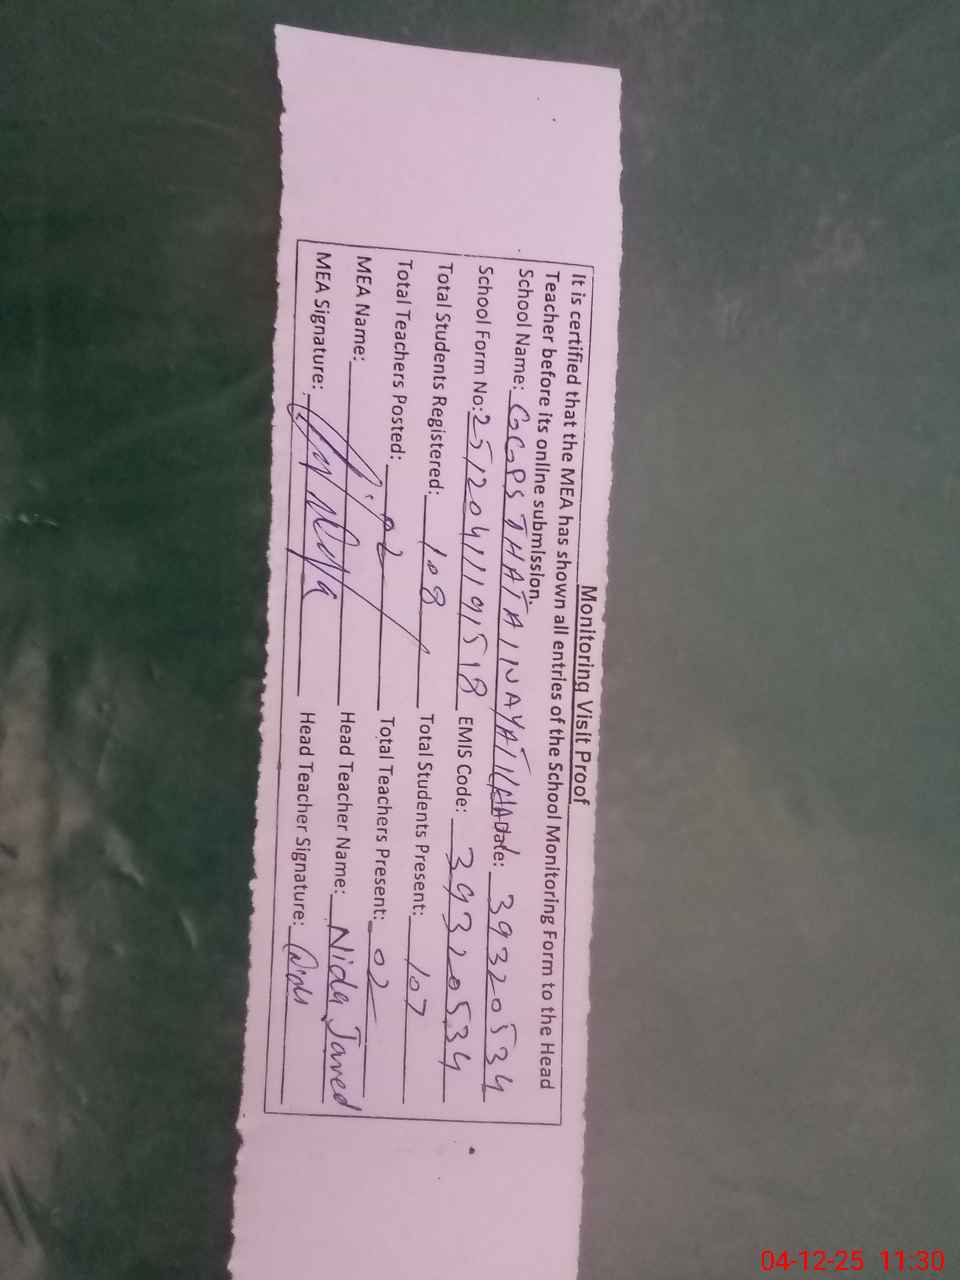 Monitoring Visit Proof
It is certified that the MEA has shown all entries of the School Monitoring Form to the Head
Teacher before its online submission.
School Name: GGPS THATA INAYATKHA Date: 39320534
School Form No: 25120411191518 EMIS Code: 39320534
Total Students Registered: 108 Total Students Present: 107
Total Teachers Posted: 02 Total Teachers Present: 02
MEA Name: Head Teacher Name: Nida Javed
MEA Signature: Head Teacher Signature: Nida
04-12-25 11:30